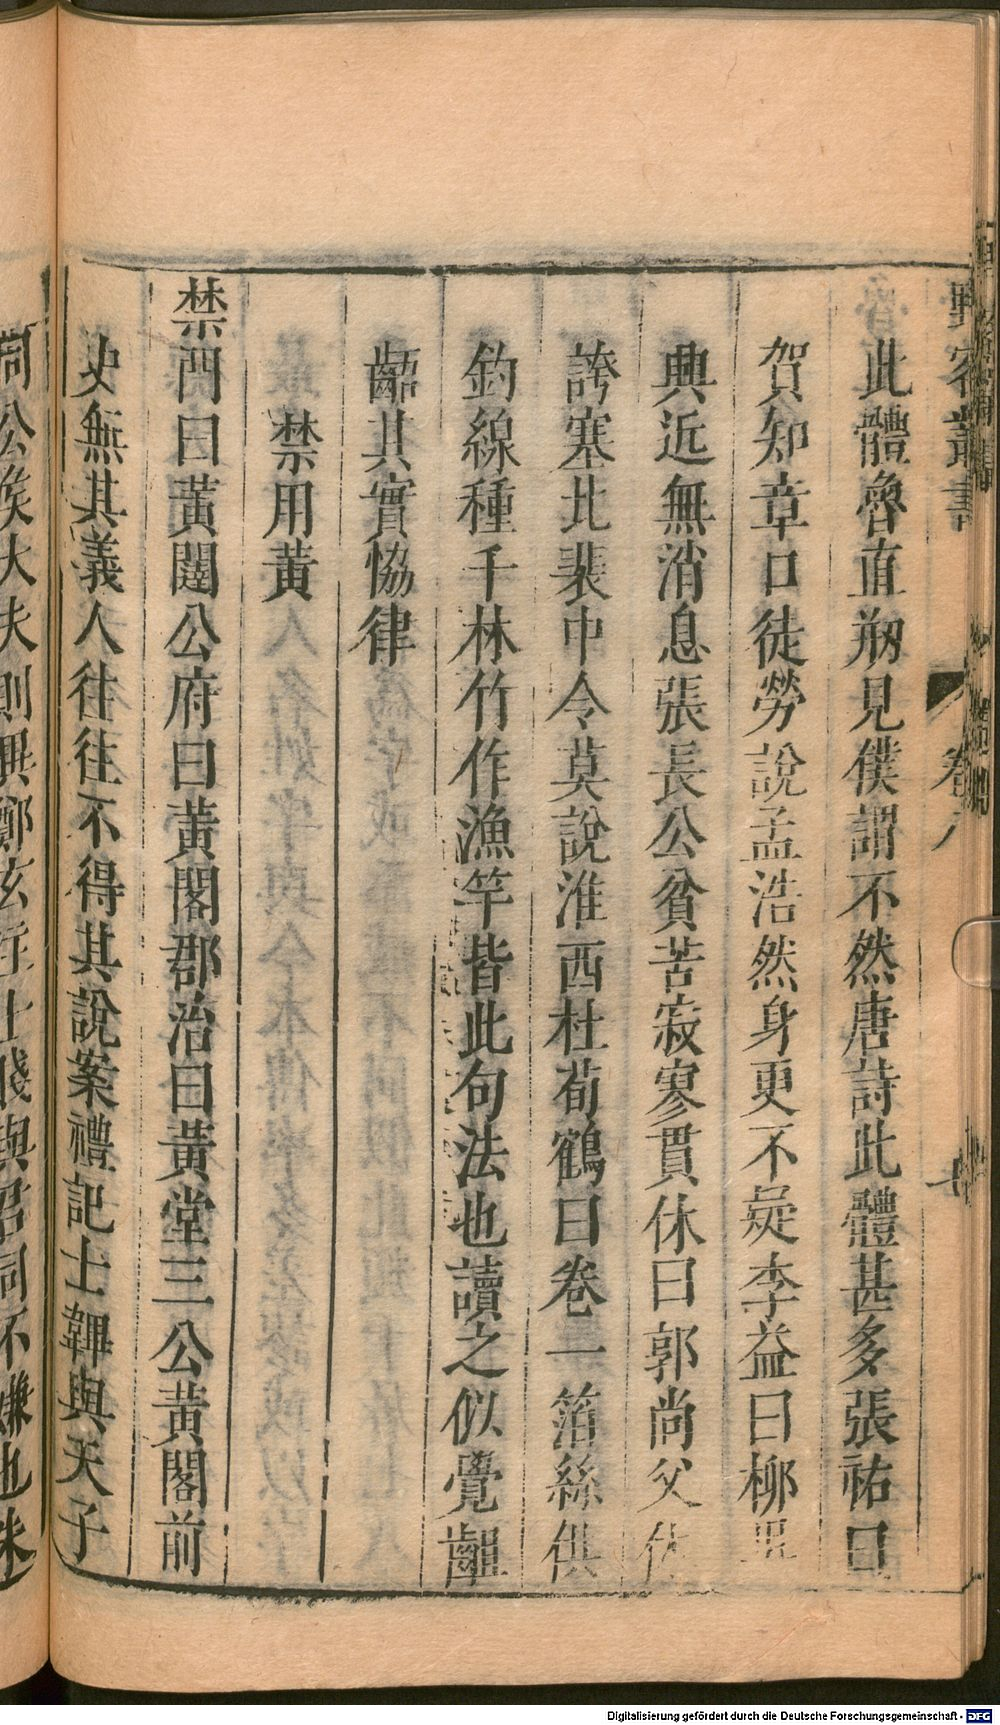 野客叢書
卷八
此體魯直刱見僕謂不然唐詩此體甚多張祐曰
賀知章口徒勞說孟浩然身更不疑李益曰柳吳
興近無消息張長公貧苦寂寥貫休曰郭尚父休
誇塞北裴中令莫說淮西杜荀鶴曰卷一箔絲供
釣線種千林竹作漁竿皆此句法也讀之似覺齟
齬其實恊律
禁用黃
禁門曰黃闥公府曰黃閣郡治曰黃堂三公黃閣前
史無其義人往往不得其說案禮記士韠與天子
同公侯大夫則異鄭玄註士賤與君同不嫌也朱
Digitalisierung gefördert durch die Deutsche Forschungsgemeinschaft - DFG